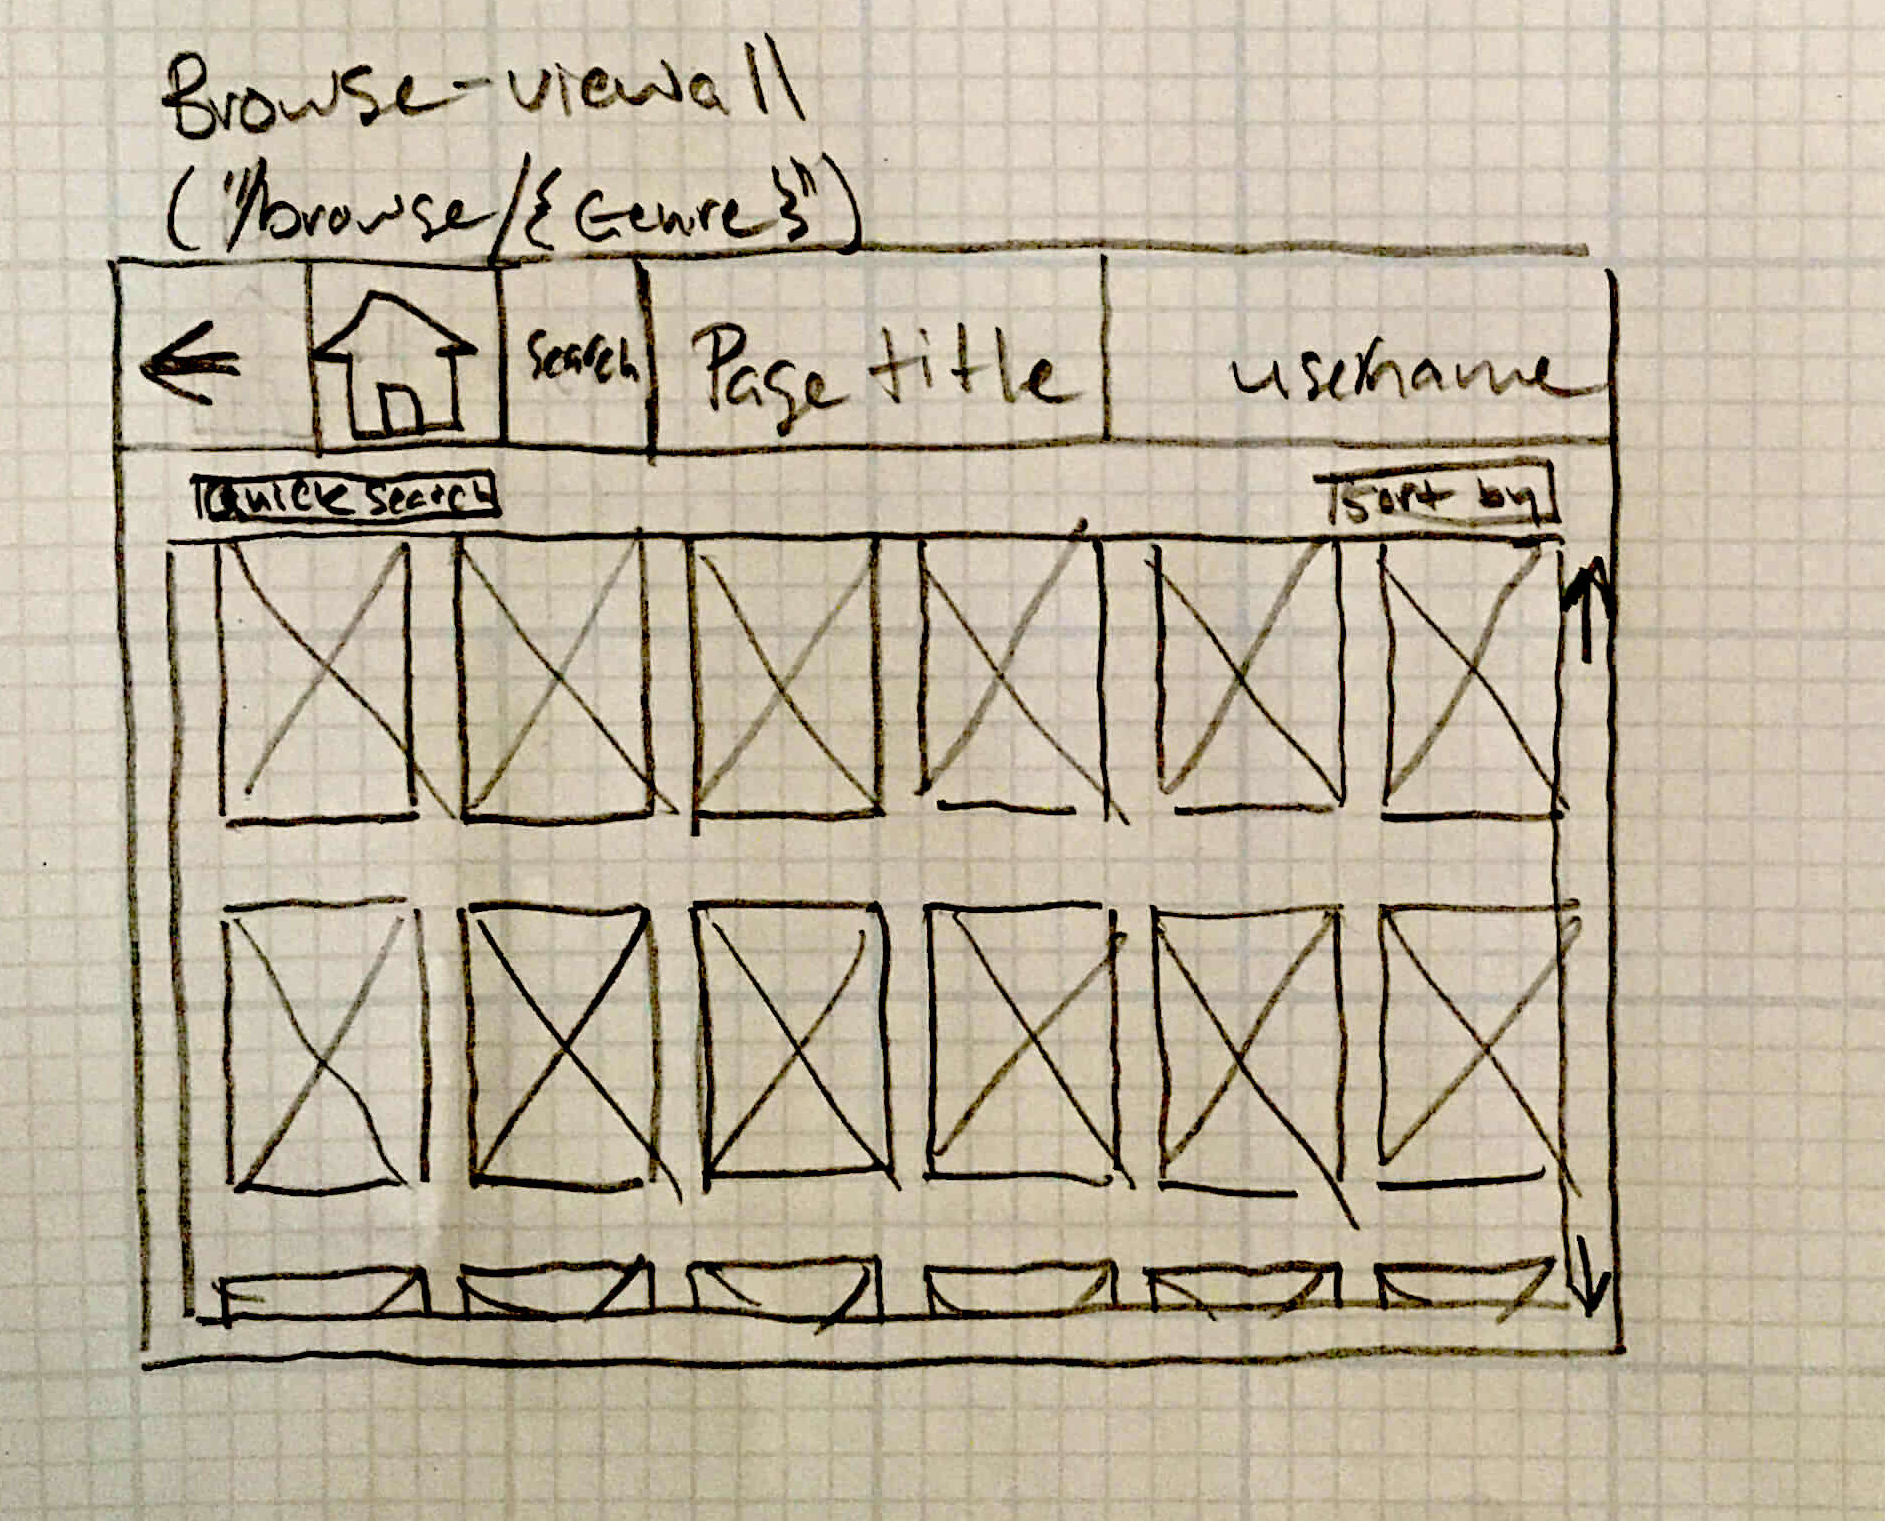 Browse-viewall
("/browse/{Genre}")
Search Page title username
Quick Search Sort by